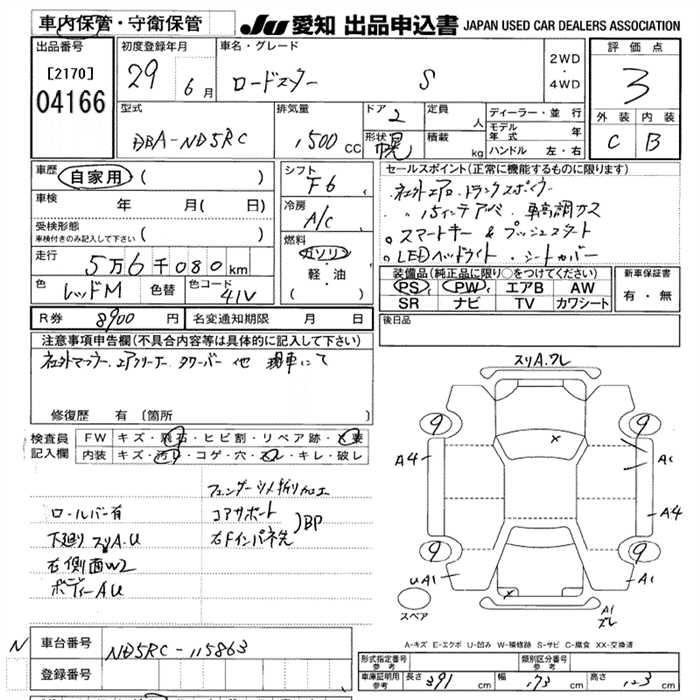 車内保管・守衛保管
JU 愛知 出品申込書 JAPAN USED CAR DEALERS ASSOCIATION
出品番号
[2170]
04166
初度登録年月
29 6月
車名・グレード
ロードスター S
2WD
・
4WD
評価点
3
外装 内装
C B
型式
DBA-ND5RC
排気量
1,500 CC
ドア 2
形状 幌
定員 人
積載 kg
ディーラー・並行
モデル年式 年
ハンドル 左・右
車歴
自家用 ( )
車検 年 月( 日)
受検形態
車検付きのみ記入して下さい ( )
走行 5万6千080km
色 レッドM 色替 色コード 41V
シフト
F6
冷房
A/C
燃料
ガソリン
軽・油
( )
セールスポイント(正常に機能するものに限ります)
・社外エアロ・トランクスポイラー
・〃 15インチアルミ・車高調ガス
○スマートキー & プッシュスタート
○LEDヘッドライト・シートカバー
装備品(純正品に限り○をつけてください)
PS PW エアB AW
SR ナビ TV カワシート
新車保証書
有・無
R券 8900円 名変通知期限 月 日
後日品
注意事項申告欄(不具合内容等は具体的に記入して下さい)
社外マフラー、エアクリーナー タワーバー 他 現車にて
修復歴 有〔箇所 〕
検査員
記入欄
FW キズ・飛石・ヒビ割・リペア跡・X要
内装 キズ・汚れ・コゲ・穴・スレ・キレ・破レ
フェンダーツメ折り加工
ロールバー有 コアサポート
下廻りスリA.U 右Fインパネ先 )BP
右側面W2
ボディーAU
スリA.ワレ
9 9
A4 A1
X
A4
9 9
UA1 A1
スペア
A1
ズレ
A-キズ E-エクボ U-凹み W-補修跡 S-サビ C-腐食 XX-交換済
N 車台番号 ND5RC-115863
登録番号
形式指定番号 参考
類別区分番号 参考
車庫証明用 参考 長さ 391 cm 幅 173 cm 高さ 123 cm